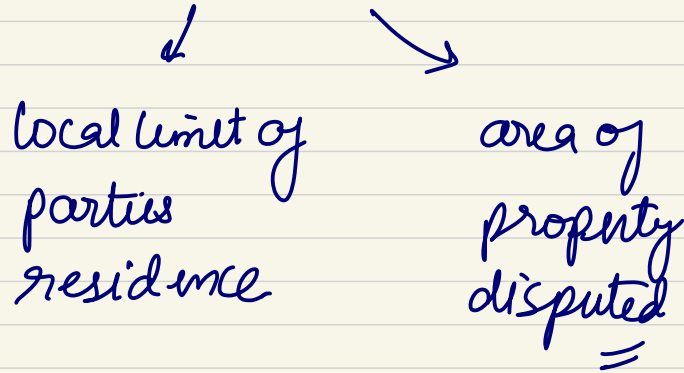 local limit of
parties
residence
area of
property
disputed